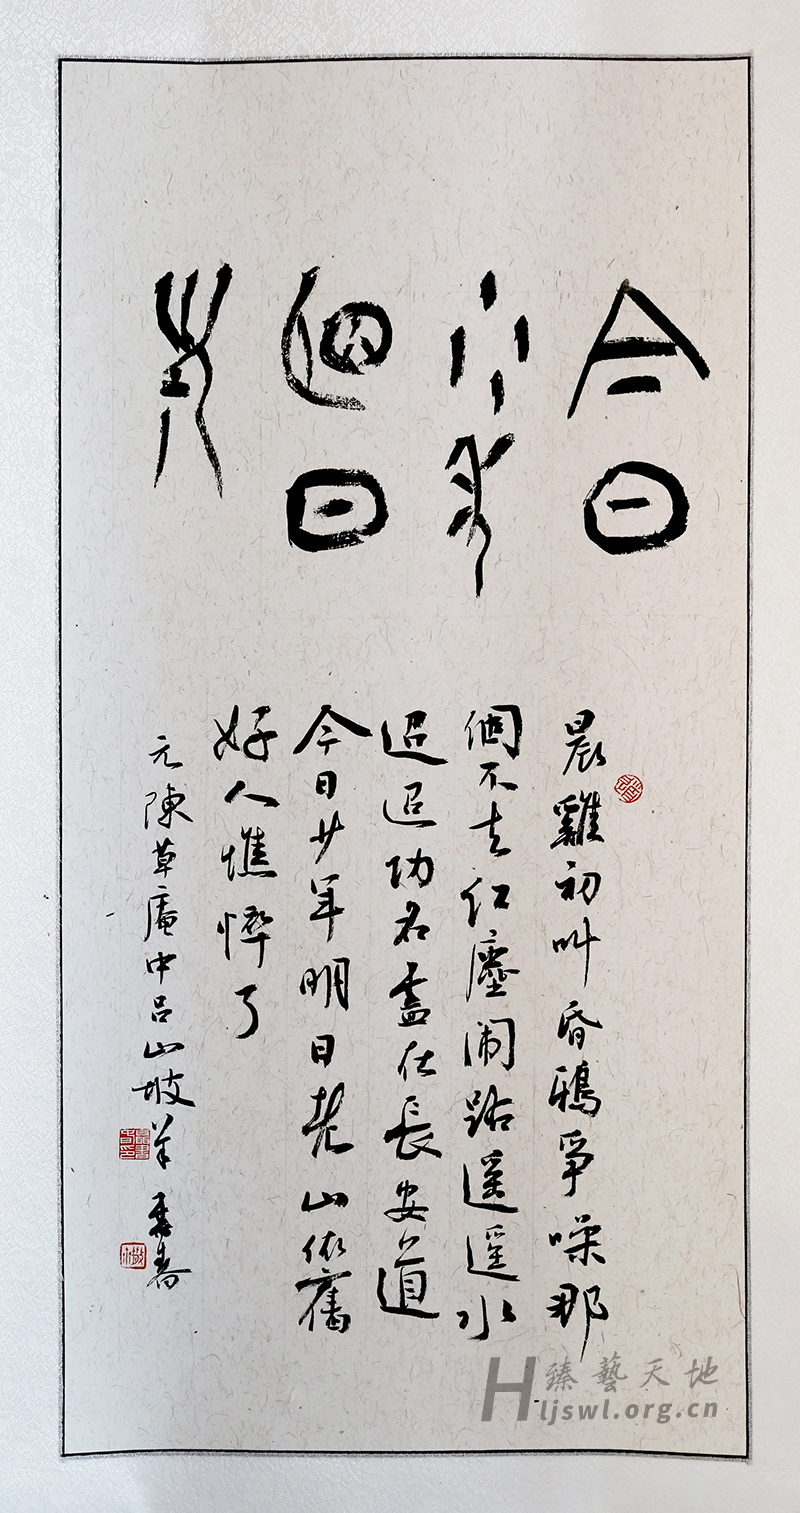 今日
少年
明日
老
晨雞初叫昏鴉爭噪那
個不去红塵闹路遥遥水
迢迢功名盡在長安道
今日少年明日老山依舊
好人憔悴了
元陳草庵中吕山坡羊
臻藝天地
Hljswl.org.cn